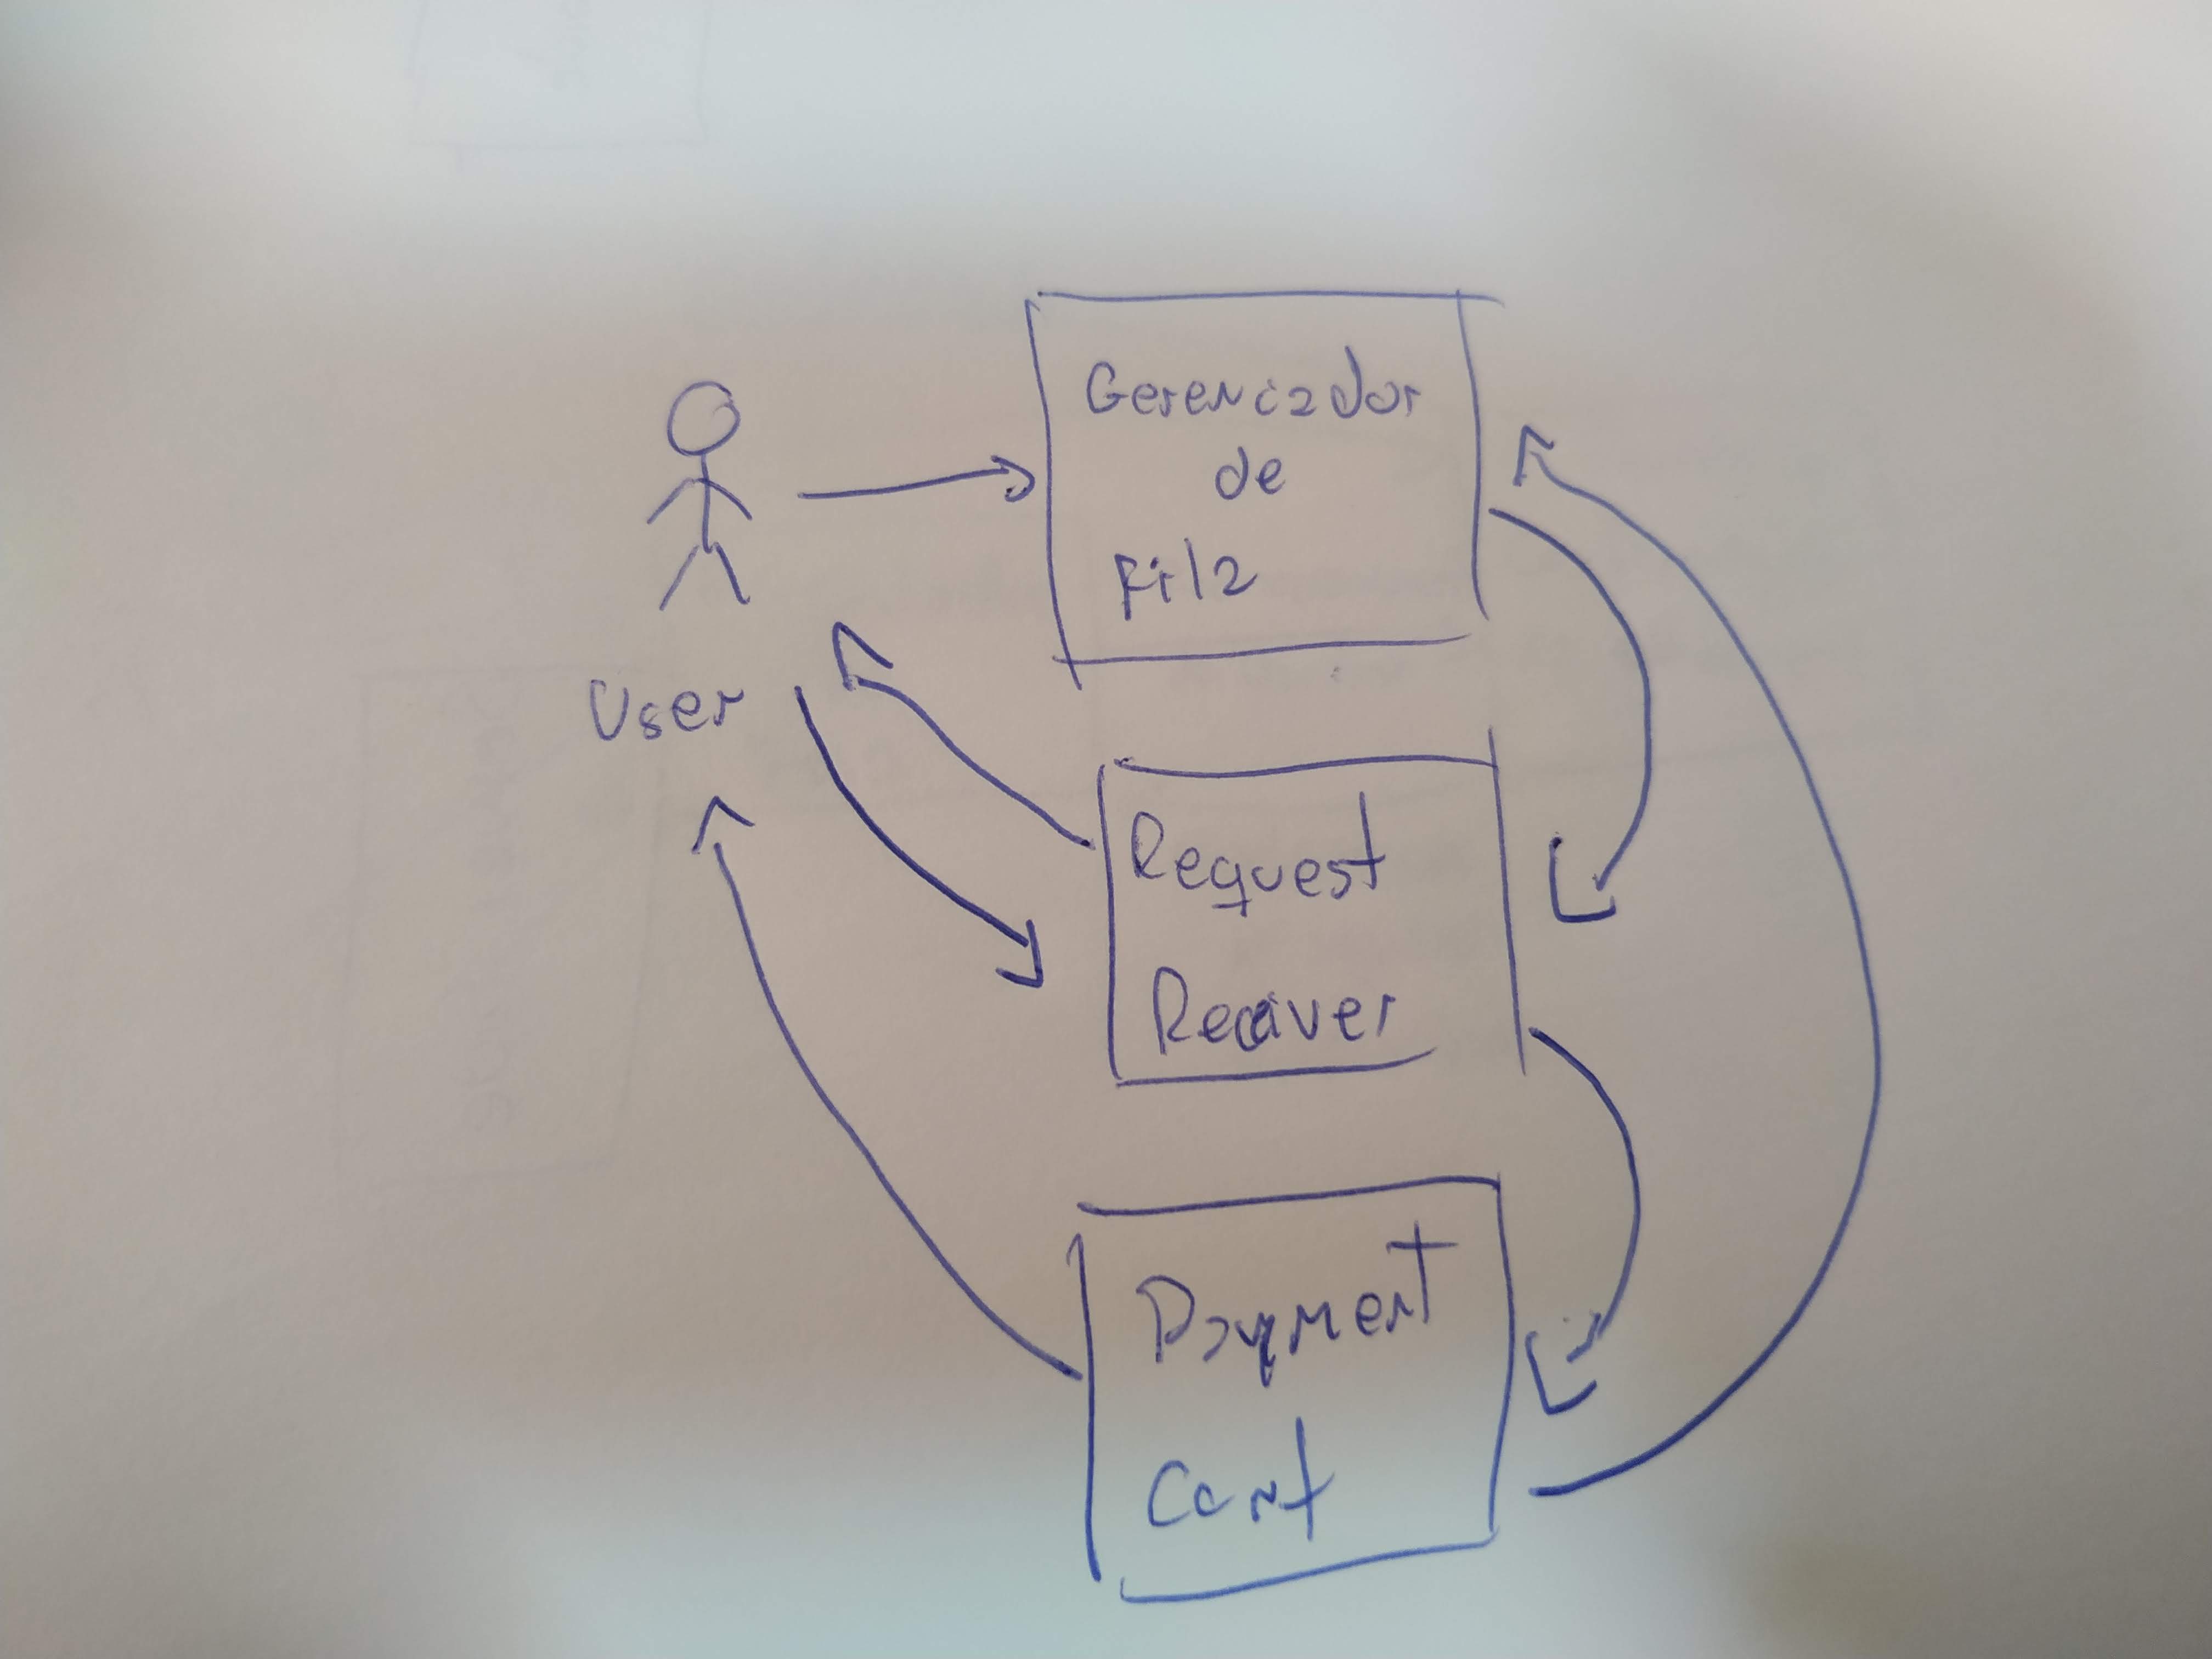 User
Gerenciador
de
Fila
Request
Reciever
Payment
Cart